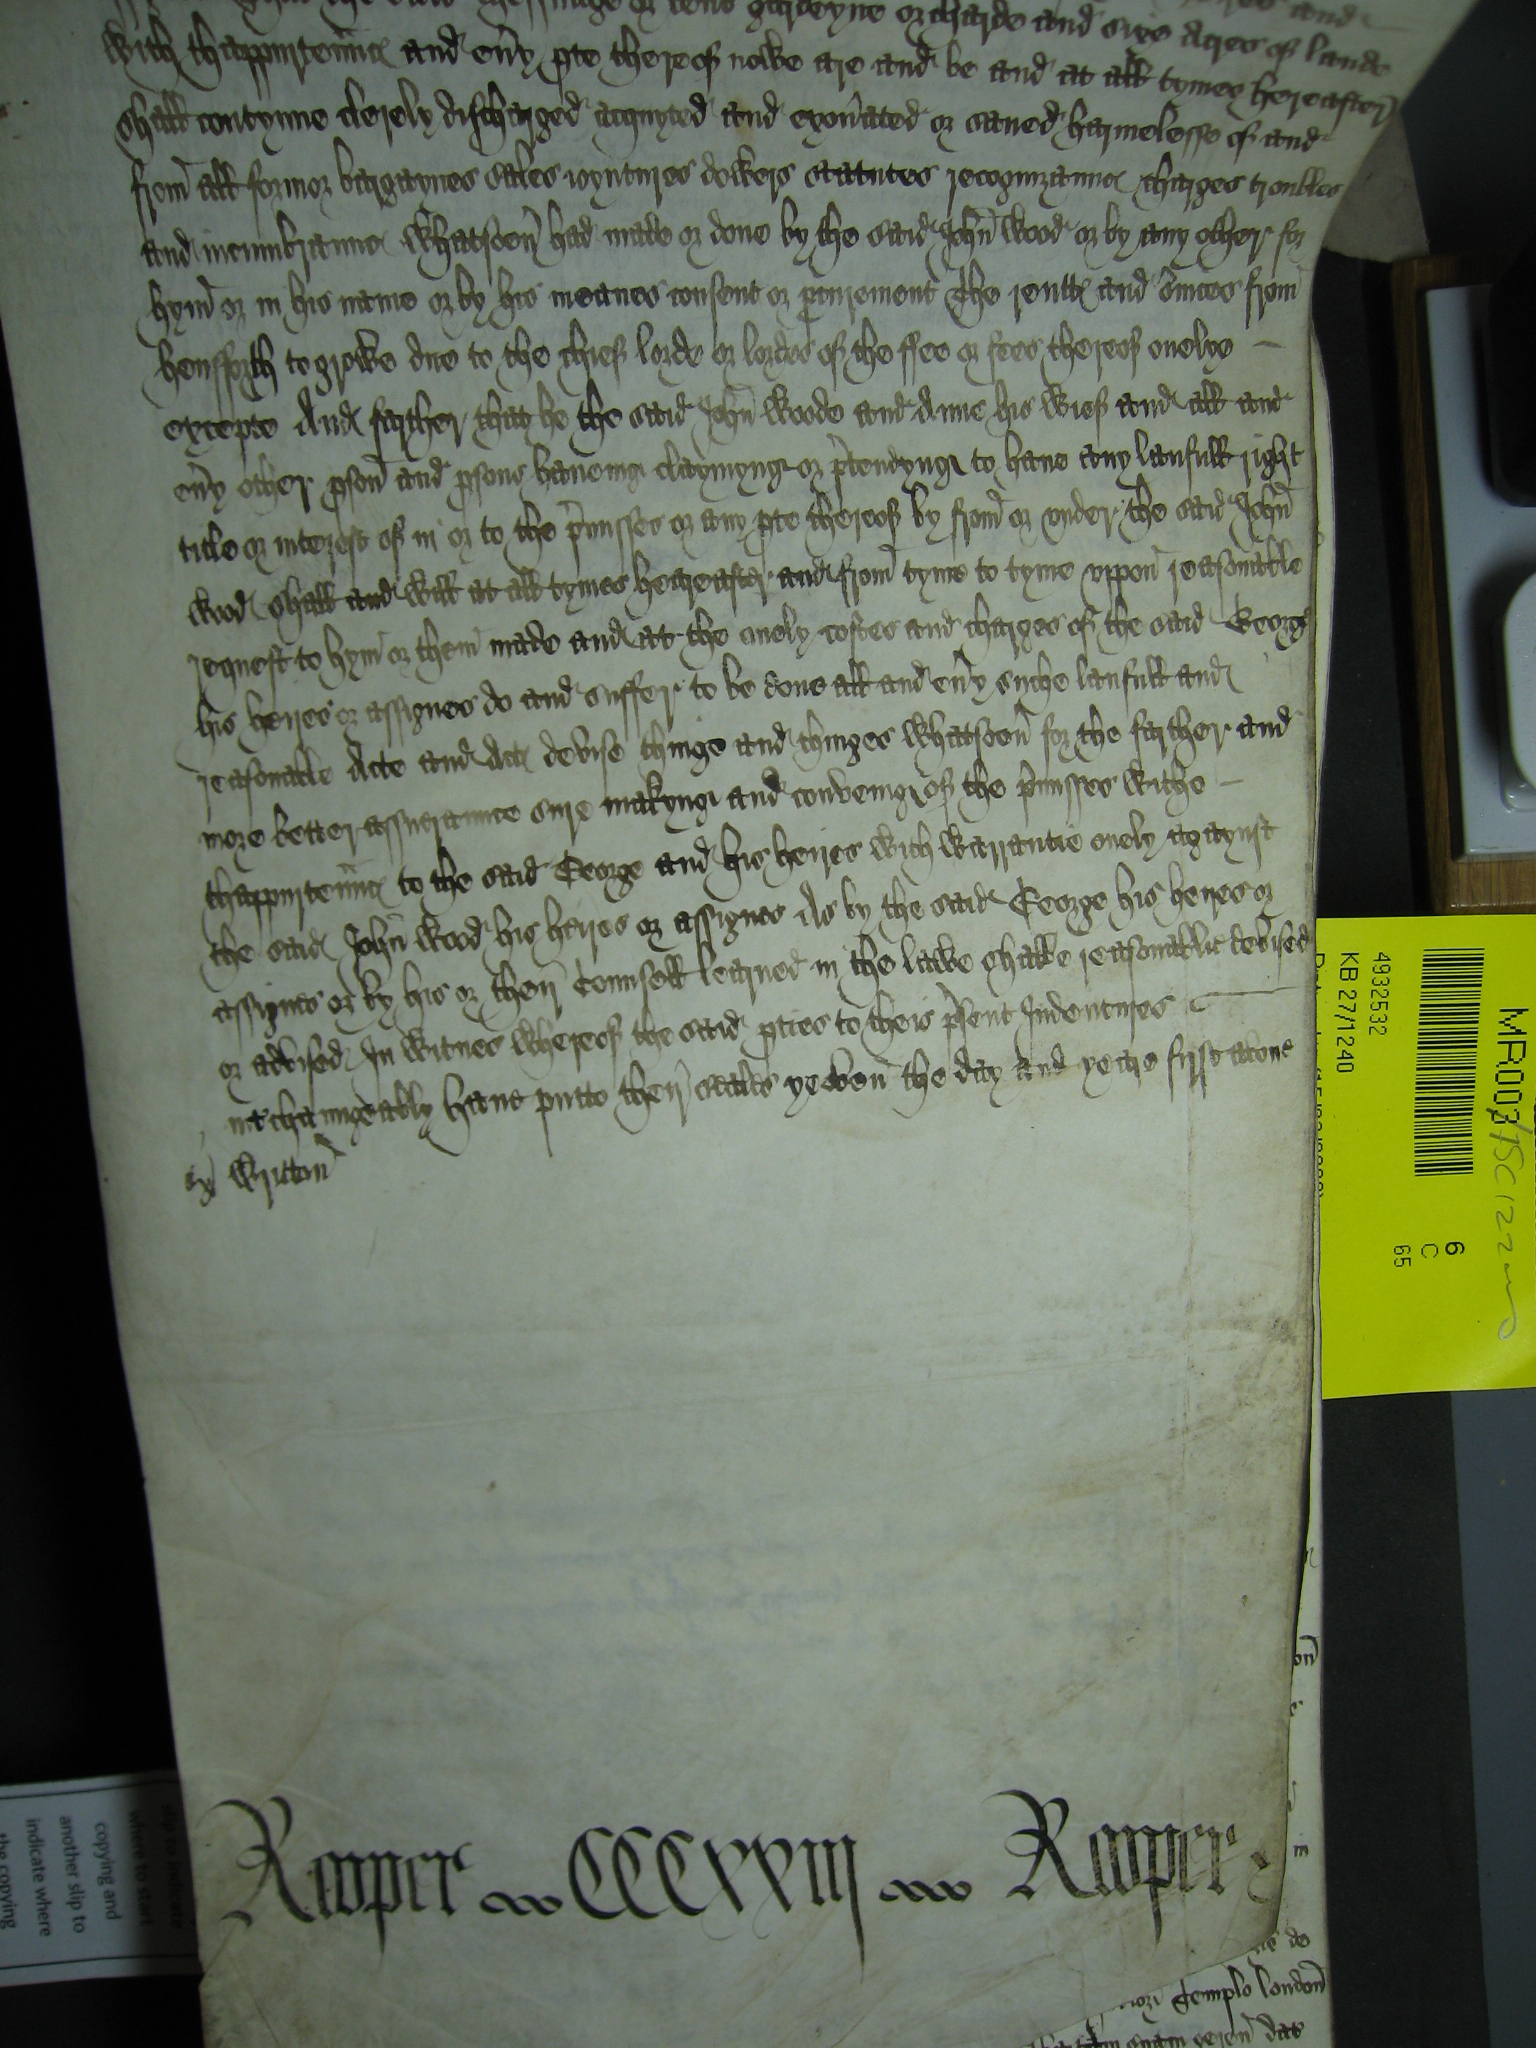 gardeyne orcharde and sixe Acres of lande
with thappurtennc and eny pte thereof nowe are and be and at all tymes hereafter
shall contynue clerely discharged acquyted and exonated or saued harmelesse of and
from all former bargaynes sales ioyntures dowers statutes recognizaunc charges troubles
and incumbraunc whatsoeu had made or done by the said John Wood or by any other for
hym or in his name or by his meanes consent or pcurement The rentt and suices from
hensfforth to growe due to the chief lorde or lordes of the ffee or fees thereof onelye
excepte And farther that he the said John Woode and Anne his wief and all and
eny other pson and psons haueing claymyng or ptendyng to haue any laufull right
title or interest of in or to the pmisses or any pte thereof by from or vnder the said John
Wood shall and will at all tymes hereafter and from tyme to tyme vppon reasonable
request to hym or them made and at the onely costes and charges of the said George
his heires or assignes do and suffer to be done all and eny suche laufull and
reasonable Acte and Act devise thinge and thinges whatsoeu for the farther and
more better assueraunce sure makyng and conveing of the pmisses withe
thappurtennc to the said George and his heires with warrantie onely agaynst
the said John Wood his heires or assignes As by the said George his heires or
assignes or by his or their Counsell learned in the lawe shalbe reasonablie devised
or advised In witnes whereof the said pties to theis psent Indentures
interchaungeably haue putto their sealles yeoven the day and yeare first aboue
ex Written
Rooper CCCxxiij Rooper
Templo london
4932532
KB 27/1240
MR003
6
C
65
copying and
another slip to
indicate where
the copying